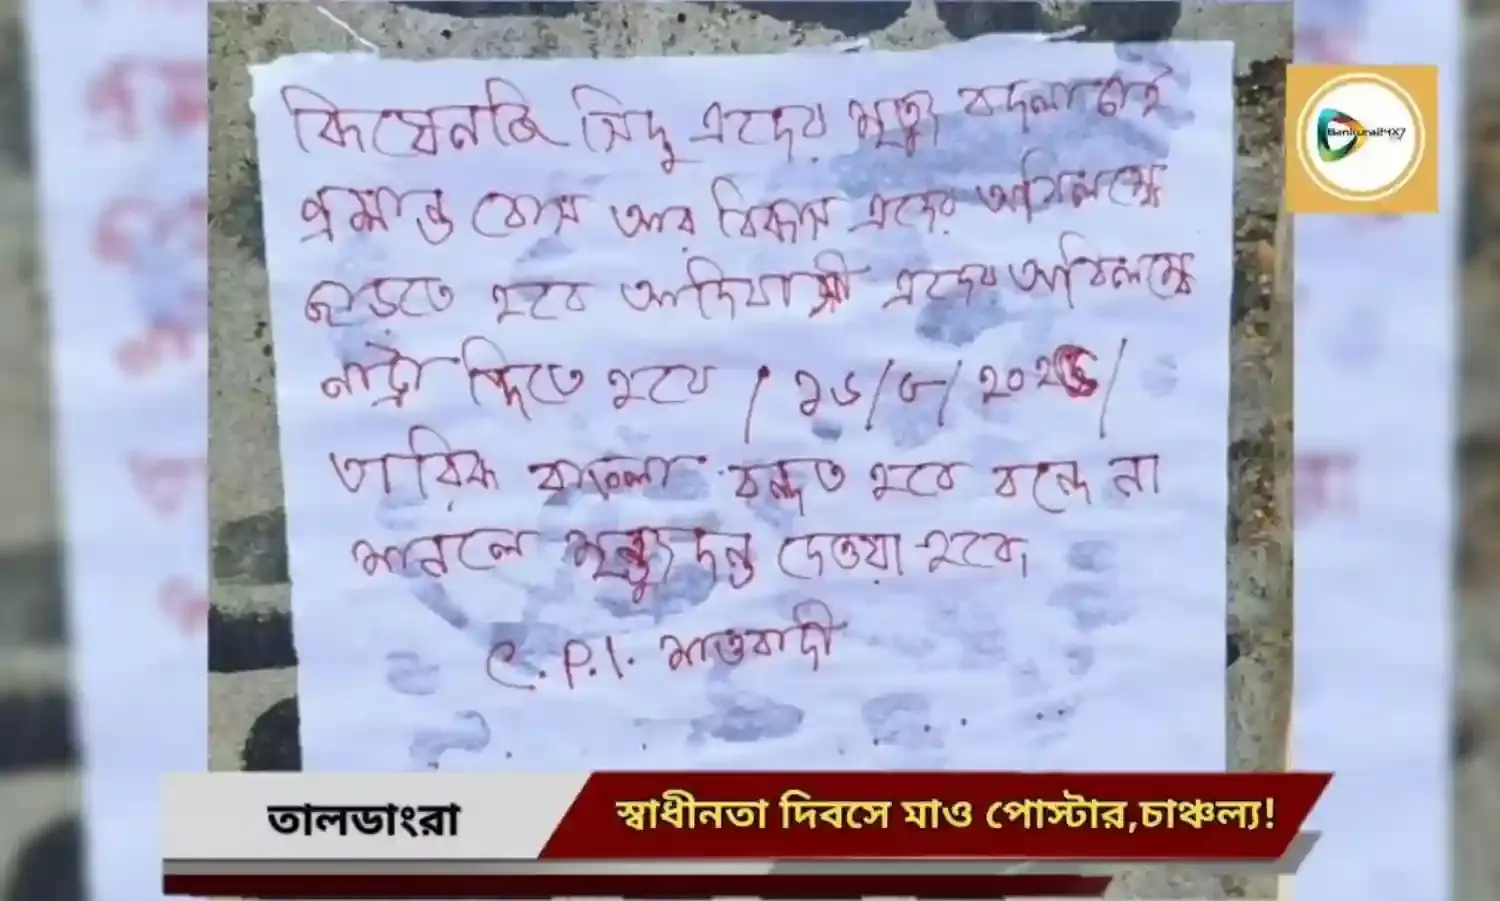 কিষেনজি সিদু এদের মৃত্যু বদলা চাই
প্রশান্ত বোস আর বিকাস এদের অবিলম্বে
ছাড়তে হবে আদিবাসী এদের অবিলম্বে
দিতে হবে / ১৬/৮/২০২
তারিক বাংলা বন্দত হবে বন্দে না
মানলে মৃত্যুদন্ড দেওয়া হবে
C.P.I. মাওবাদী
Bankura24X7
তালডাংরা
স্বাধীনতা দিবসে মাও পোস্টার,চাঞ্চল্য!